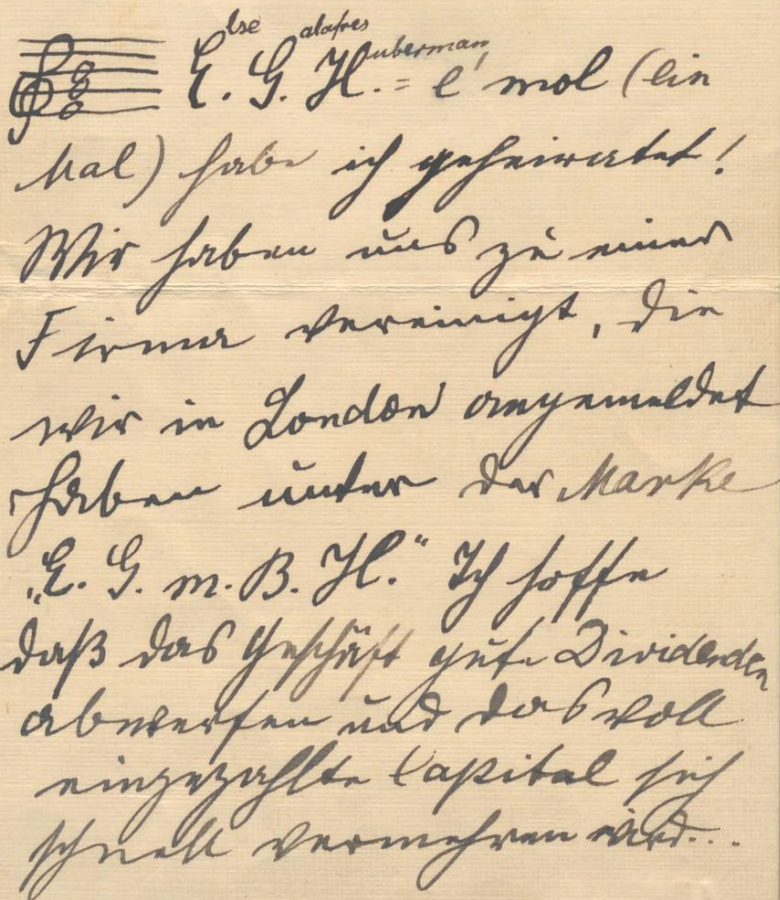 lse alafres uberman
E. G. H. = e' mol (ein
Mal) habe ich geheiratet!
Wir haben uns zu einer
Firma vereinigt, die
wir in London angemeldet
haben unter der Marke
„E. G. m. B. H.“ Ich hoffe
daß das Geschäft gute Dividenden
abwerfen und das voll
eingezahlte Capital sich
schnell vermehren wird...